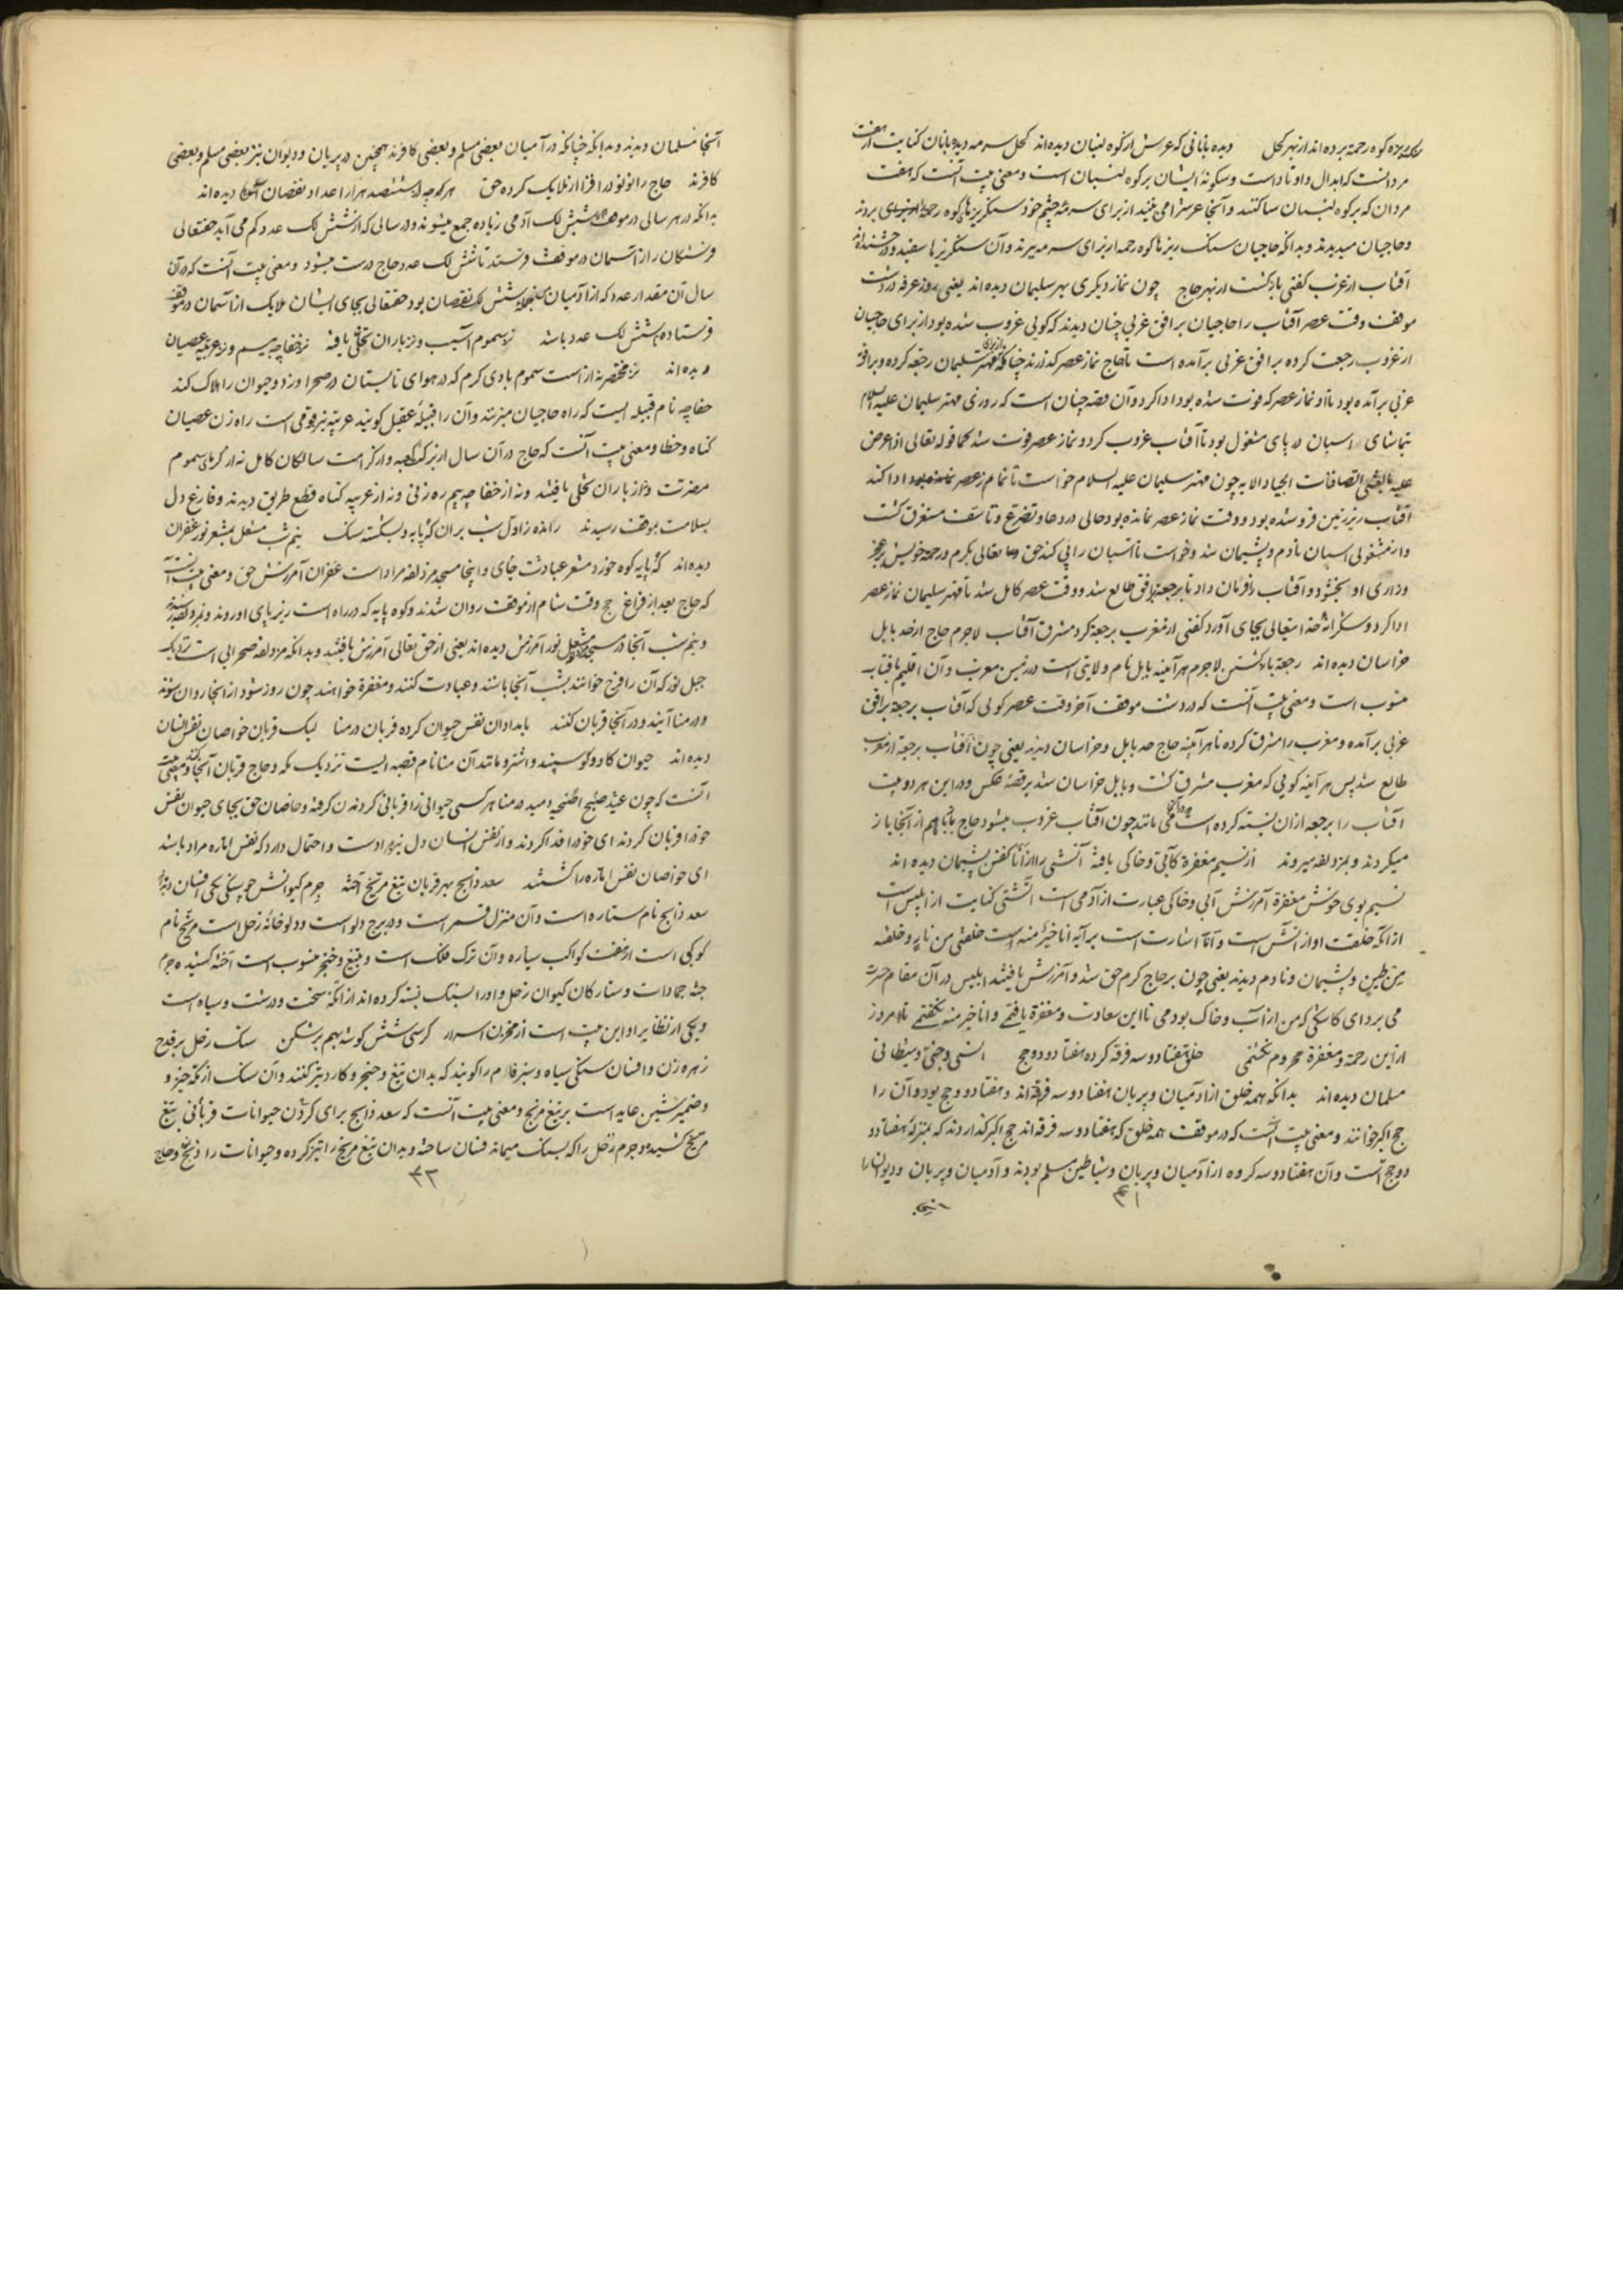 سنگ ریزه کوه رحمة برده اند از بهر کحل دیده بابانی که عرش از کوه لبنان دیده اند کحل سرمه دیده بابان کنایت از هفت
مردانست که ابدال و اوتاد است و سکونة ایشان بر کوه لبنان است و معنی بیت آنست که هفت
مردان که بر کوه لبنان ساکنند و آنجا عرش را می بینند از برای سرمه چشم خود سنگریزهای کوه رحمة بردند
و حاجیان میدیدند و بدانکه حاجیان سنگ ریزها کوه رحمه از برای سرمه میبرند و آن سنگریزها سفید و درخشنده اند
آفتاب از غرب گفتی بازگشت از بهر حاج چون نماز دیگری بهر سلیمان دیده اند یعنی روز عرفه در دشت
موقف وقت عصر آفتاب را حاجیان بر افق غربی چنان دیدند که گویی غروب شده بود از برای حاجیان
از غروب رجعت کرده بر افق غربی برآمده است تا حاج نماز عصر گذارند چنانکه از برای مهتر سلیمان رجعة کرده و بر افق
غربی برآمده بود تا او نماز عصر که فوت شده بود ادا کرد و آن قصه چنان است که روزی مهتر سلیمان علیه السلام
بتماشای اسپان دریای مشغول بود تا آفتاب غروب کرد و نماز عصر فوت شد کما قوله تعالی اذ اعرض
علیه بالعشی الصافنات الجیاد الایه چون مهتر سلیمان علیه السلام خواست تا نماز عصر ادا کند
آفتاب زیر زمین فرو شده بود و وقت نماز عصر نمانده بود حالی در دعا و تضرع و تاسف مستغرق گشت
و از مشغولی اسپان نادم و پشیمان شد و خواست تا اسپان را پی کند حق تعالی بکرم و رحمة خویش بر عجز
و زاری او ببخشود و آفتاب را فرمان داد تا برجعة بر افق طالع شد و وقت عصر کامل شد تا مهتر سلیمان نماز عصر
ادا کرد و شکرانهٔ خدایتعالی بجای آورد گفتی از مغرب برجعة کرد مشرق آفتاب لاجرم حاج از حد بابل
خراسان دیده اند رجعة بازگشتن لاجرم هر آئینه بابل نام ولایتی است در زمین مغرب و آن اقلیم بآفتاب
منسوب است و معنی بیت آنست که در دشت موقف آخر وقت عصر گویی که آفتاب برجعة بر افق
غربی برآمده و مغرب را مشرق کرده تا هر آئینه حاج حد بابل و خراسان دیدند یعنی چون آفتاب برجعة از مغرب
طالع شد پس هر آینه گویی که مغرب مشرق گشت و بابل خراسان شد بر قصهٔ عکس و در این هر دو بیت
آفتاب را برجعة از آن نسبته کرده است که در آنجا می مانند چون آفتاب غروب میشود حاج باز از آنجا باز
میگردند و بمزدلفه میروند از نسیم مغفرة کآبی و خاکی یافته آتشی را از انا گفتن پشیمان دیده اند
نسیم بوی خوش مغفرة آمرزش آبی و خاکی عبارت از آدمی است آتشی کنایت از ابلیس است
از آنکه خلقت او از آتش است و انا اشارت است بر آیه انا خیر منه است خلقتنی من نار و خلقته
من طین و پشیمان و نادم دیدند یعنی چون بر حاج کرم حق شد و آمرزش یافتند ابلیس در آن مقام حسرت
می برد ای کاشکی که من از آب و خاک بودمی تا این سعادت و مغفرة یافتمی و انا خیر منه نگفتمی تا امروز
از این رحمة و مغفرة محروم نگشتمی خلق هفتاد و سه فرقه کرده هفتاد و دو حج انسی و جنی و شیطانی
مسلمان دیده اند بدانکه همه خلق از آدمیان و پریان هفتاد و سه فرقه اند و هفتاد و دو حج بود و آن را
حج اکبر خوانند و معنی بیت آنست که در موقف همه خلق که هفتاد و سه فرقه اند حج اکبر گذاردند که بمنزلهٔ هفتاد و
دو حج است و آن هفتاد و سه گروه از آدمیان و پریان و شیاطین مسلم بودند و آدمیان و پریان و دیوان را
۴۱
آنجا
آنجا مسلمان دیدند و بدانکه چنانکه در آدمیان بعضی مسلم و بعضی کافرند همچنین در پریان و دیوان نیز بعضی مسلم و بعضی
کافرند حاج را نو نو در افزا از ملایک کرده حق هر کجا ششصد هزار اعداد نقصان دیده اند
بدانکه در هر سالی در موقف شش لک آدمی زیاده جمع میشوند و در سالی که از شش لک عدد کم می آید حقتعالی
فرشتگان را از آسمان در موقف فرستد تا شش لک عدد حاج درست میشود و معنی بیت آنست که در آن
سال آن مقدار عدد که از آدمیان شش لک نقصان بود حقتعالی بجای ایشان ملایک از آسمان در موقف
فرستاده شش لک عدد باشد نز سموم آسیب و نز باران تخلی یافته نز خفاجه بیم و نز غزیه عصیان
دیده اند نز مختصر نه از است سموم بادی گرم که در هوای تابستان در صحرا وزد و حیوان را هلاک کند
خفاجه نام قبیله ایست که راه حاجیان میزنند و آن را قبیلهٔ عقیل گویند غزیه نیز قومی است راه زن عصیان
گناه و خطا و معنی بیت آنست که حاج در آن سال از برکت کعبه و از کرامت سالکان کامل نه از گرمای سموم
مضرت و نه از باران تخلی یافتند و نه از خفاجه بیم ره زنی و نه از غزیه گناه قطع طریق دیدند و فارغ دل
بسلامت بموقف رسیدند رانده ز اول شب بر آن که پایه و بشکسته سنگ نیم شب مشعل بمشعر نور غفران
دیده اند که پایه کوه خورد مشعر عبادت جای و اینجا مسجد مزدلفه مراد است غفران آمرزش حق و معنی بیت آنست
که حاج بعد از فراغ حج وقت شام از موقف روان شدند و کوه پایه که در راه است زیر پای آوردند و بمزدلفه رسیدند
و نیم شب آنجا در مسجد مشعل نور آمرزش دیده اند یعنی از حق تعالی آمرزش یافتند و بدانکه مزدلفه صحرایی است نزدیک
جبل نور که آن را قزح خوانند بشب آنجا باشند و عبادت کنند و مغفرة خواهند چون روز شود از آنجا روان شوند
و در منا آیند و در آنجا قربان کنند بامدادان نفس حیوان کرده قربان در منا لیک قربان خواصان نفس انسان
دیده اند حیوان گاو و گوسپند و اشتر و مانند آن منا نام قصبه ایست نزدیک مکه و حاج قربان آنجا کنند و معنی بیت
آنست که چون عید صبح اضحی دمید در منا هر کسی حیوانی را قربانی کردند و خاصان حق بجای حیوان نفس
خود را قربان کردند ای خود را فدا کردند و از نفس انسان دل نیز مراد است و احتمال دارد که نفس اماره مراد باشد
ای خواصان نفس اماره را کشتند سعد ذابح بهر قربان تیغ مریخ آخته جرم کیوانش چو سنگی مکی افسان دیده اند
سعد ذابح نام ستاره است و آن منزل قمر است و در برج دلو است و دلو خانهٔ زحل است مریخ نام
کوکبی است از هفت کواکب سیاره و آن ترک فلک است و به تیغ و خنجر منسوب است آخته کشیده جرم
جثه جمادات و ستارگان کیوان زحل و او را بسنگ نسبته کرده اند از آنکه سخت و درشت و سیاه است
و یکی از نظایر او این بیت است از مخزن اسرار کرسی شش گوشه بهم برشکن سنگ زحل بر قدح
زهره زن و افسان سنگی سیاه و سبزفام را گویند که بدان تیغ و خنجر و کارد تیز کنند و آن سنگ از مکه خیزد
و ضمیر شین عاید است بر تیغ مریخ و معنی بیت آنست که سعد ذابح برای کردن حیوانات قربانی تیغ
مریخ کشیده و جرم زحل را که بسنگ میماند فسان ساخته و بدان تیغ مریخ را تیز کرده و حیوانات را ذبح و حاج
۴۲